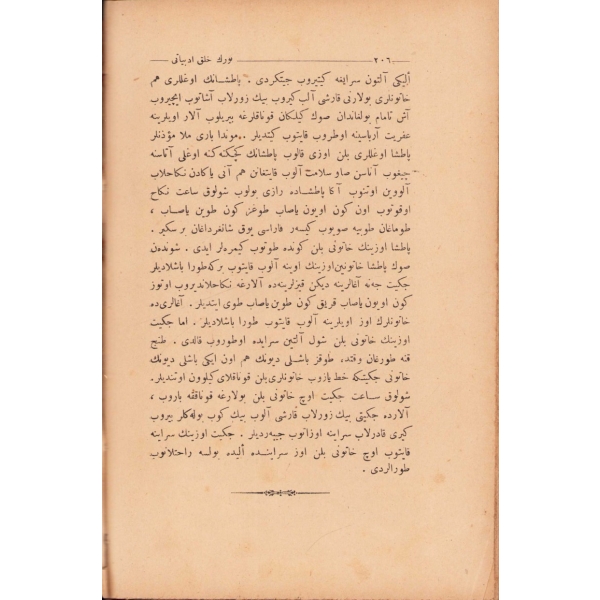 ٢٠٦ تورك خلق ادبياتى
أليكى آلتون سرايغه كيتيروب جيتكردى . پاطشانك اوغللرى هم
خاتونلرى بولارنى قارشى آلب كيروب بيك زورلاب آشاتوب ايچيروب
آش تامام بولغاندان صوك كيلكان قوناقلرغه بيريلوب آلار اويلرينه
عفريت آرباسينه اوطروب قايتوب كيتديلر . موندا بارى ملا مؤذنلر
پاطشا اوغللرى بلن اوزى قالوب پاطشانك كچكنه‌كنه اوغلى آتاسنه
چيغوب آتاسن صاو سلامت آلوب قايتقانن هم آنى ياكادن نكاحلاب
آلووين اوتنوب آكا پاطشاده رازى بولوب شولوق ساعت نكاح
اوقوتوب اون كون اويون ياصاب طوغز كون طوين ياصاب ،
طوماغان طوبيه صويوب كيسه‌ر فاراسى يوق شانغرداغان بر سكير .
پاطشا اوزينك خاتونى بلن كونده طوتوب كيمره‌لر ايدى . شوندەن
صوك پاطشا خاتونين اوزينك اوينه آلوب قايتوب بركه طورا باشلاديلر
جكيت جنه آغالرينه ديكن قيزلرينه‌ده آلارغه نكاحلانديروب اوتوز
كون اويون ياصاب قريق كون طوين ياصاب طوى ايتديلر . آغالرى‌ده
خاتونلرك اوز اويلرينه آلوب قايتوب طورا باشلاديلر . اما جكيت
اوزينك خاتونى بلن شول آلتين سرايده اوطوروب قالدى . طنج
قنه طورغان وقتده ، طوقز باشلى ديونك هم اون ايكى باشلى ديونك
خاتونى جكيتكه خط يازوب خاتونلرى بلن قوناقلاى كيلوون اوتنديلر.
شولوق ساعت جكيت اوچ خاتونى بلن بولارغه قوناققه باروب ،
آلارده جكيتى بيك زورلاب قارشى آلوب بيك كوب بوله‌كلر بيروب
كيرى قادرلاب سراينه اوزاتوب جيبه‌رديلر . جكيت اوزينك سراينه
قايتوب اوچ خاتونى بلن اوز سراينده أليده بولسه راحتلانوب
طورالردى .